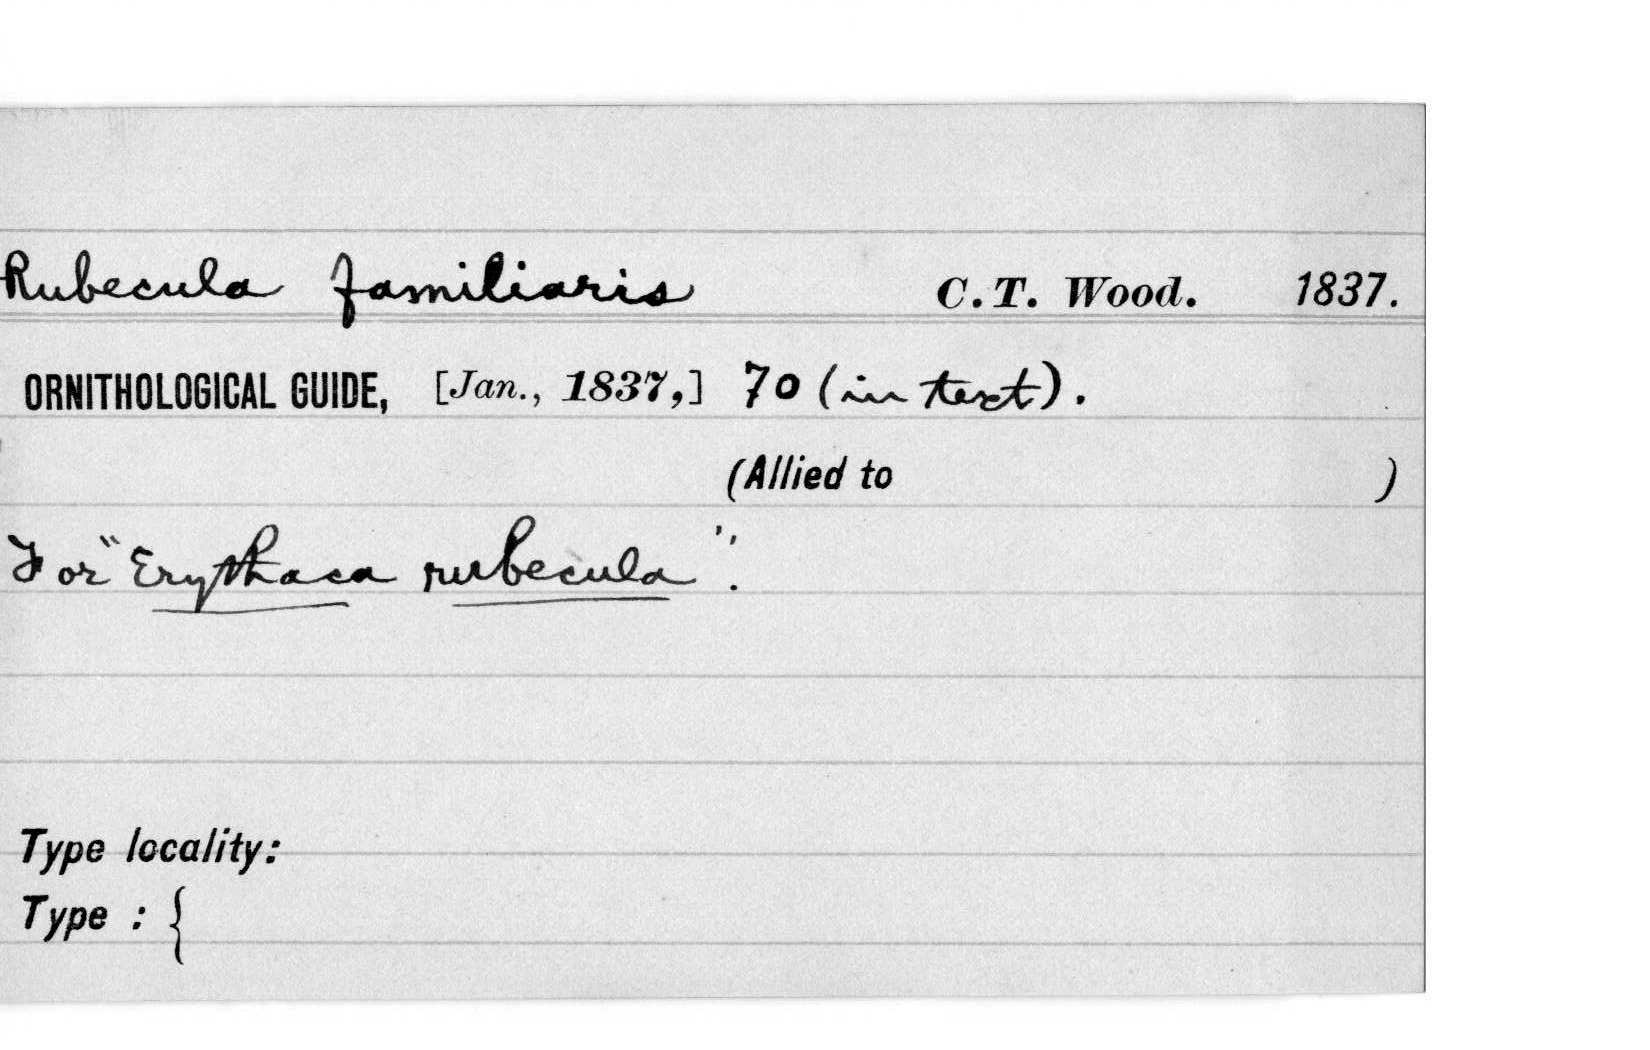 Rubecula familiaris C. T. Wood. 1837.
ORNITHOLOGICAL GUIDE, [Jan., 1837,] 70 (in text).
(Allied to )
For "Erythaca rubecula".
Type locality:
Type : {